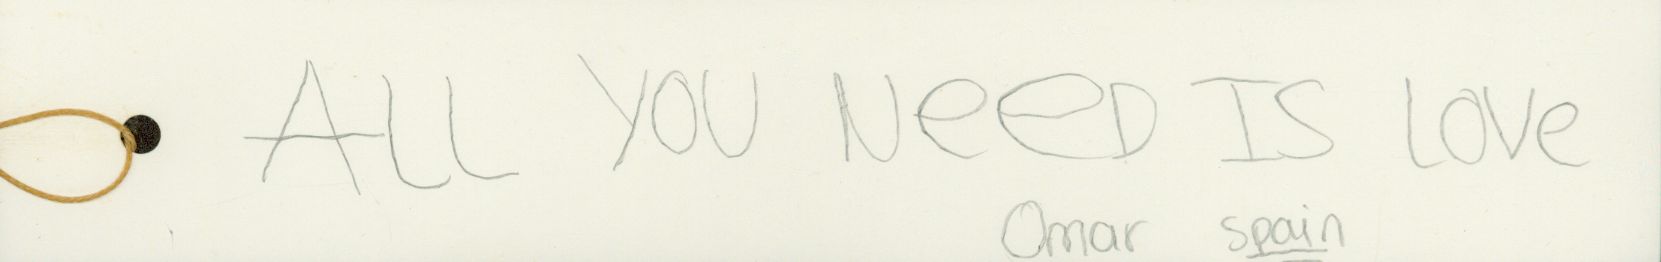 ALL YOU NEeD IS LOVe
Omar spain